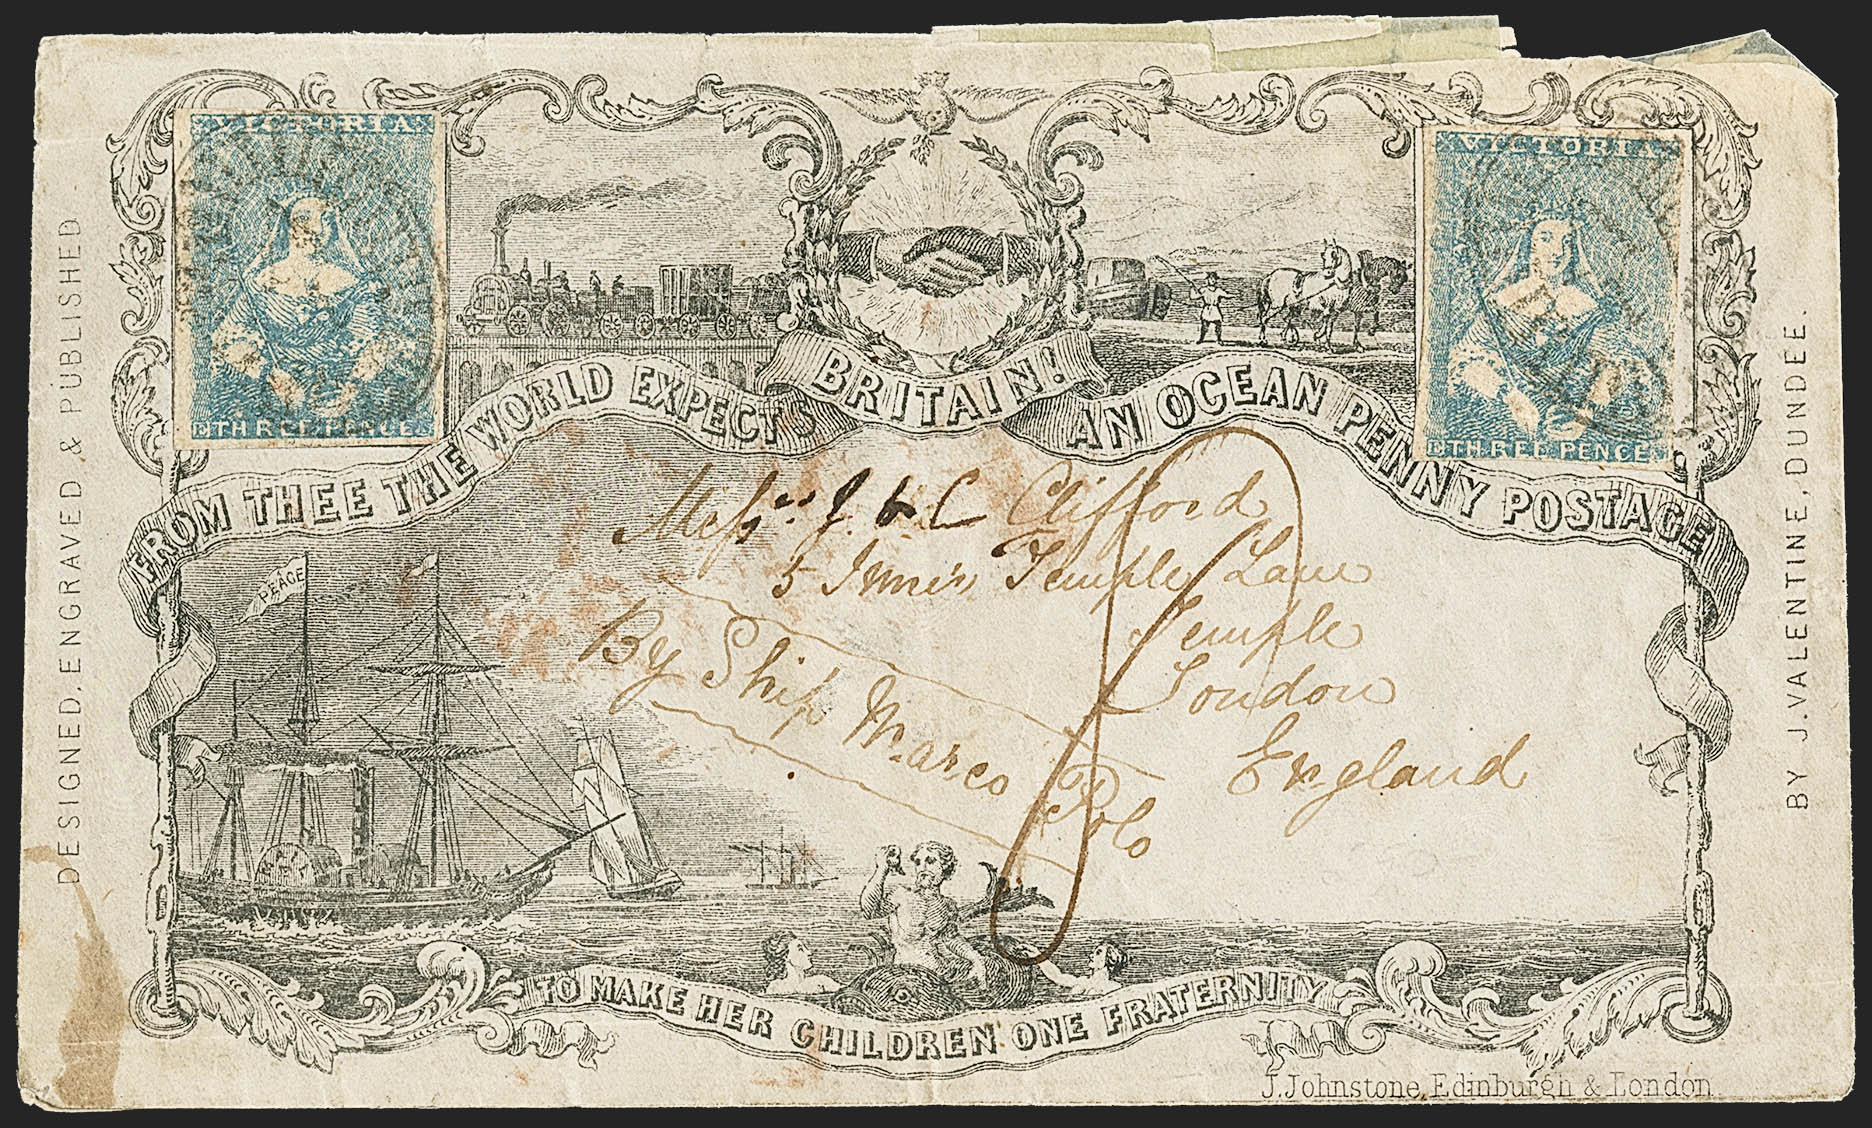 VICTORIA
THREE PENCE
VICTORIA
THREE PENCE
DESIGNED, ENGRAVED, & PUBLISHED
BY J. VALENTINE, DUNDEE.
FROM THEE THE WORLD EXPECTS
BRITAIN!
AN OCEAN PENNY POSTAGE
PEACE
Messrs. J. & C Clifford
5 Inner Temple Lane
Temple
London
England
By Ship Marco Polo
TO MAKE HER CHILDREN ONE FRATERNITY
J. Johnstone, Edinburgh & London